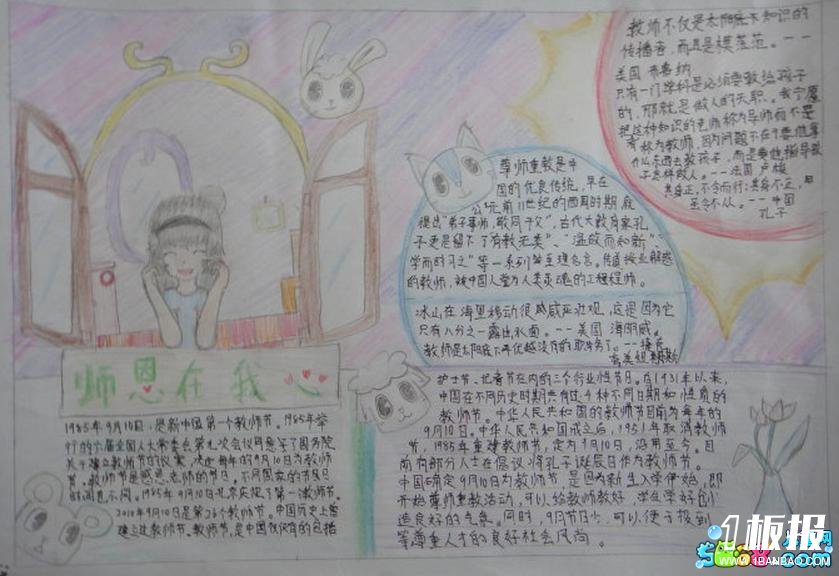 师恩在我心
1985年9月10日,是新中国第一个教师节。1985年举
关于建立教师节的议案,决定每年的9月10日为教师
节。教师节是感恩老师的节日。不同国家的节日
时间也不同。1985年9月10日北京庆祝了第一教师节。
2010年9月10日是第26个教师节。中国历史上曾
建立过教师节。教师节,是中国仅有的包括
护士节、记者节在内的三个行业性节日。在1931年以来,
中国在不同历史时期共有过4种不同日期和性质的
教师节。中华人民共和国的教师节目前为每年的
9月10日。中华人民共和国成立之后,1951年取消教师
节,1985年重建教师节,定为9月10日,沿用至今。目
前有部分人士在倡议将孔子诞辰日作为教师节。
中国确定9月10日为教师节,是因为新生入学伊始,即
开始尊师重教活动,可以给教师教好、学生学好创
造良好的气氛。同时,9月节日少,可以便于报刊
等尊重人才的良好社会风尚。
尊师重教是中
国的优良传统,早在
公元前11世纪的西周时期,就
提出"弟子事师,敬同于父",古代大教育家孔
子更是留下了"有教无类"、"温故而知新"、
学而时习之"等一系列至理名言。传道授业解惑
的教师,被中国人誉为人类灵魂的工程师。
冰山在海里移动很威严壮观,这是因为它
只有八分之一露出水面。--美国 海明威。
教师是太阳底下再优越没有的职务了。--捷克
教师不仅是太阳底下知识的
传播者,而且是模范。--
美国 布鲁纳
只有一门学科是必须要教给孩子
的,那就是做人的天职。我宁愿
把这种知识的老师称为导师而不是
有称为教师,因为问题不在于要他拿
什么东西去教孩子,而是要他指导孩
子怎样做人。--法国 卢梭
其身正,不令而行;其身不正,虽
至令不从。--中国
孔子
1板报
WWW.1BANBAO.COM